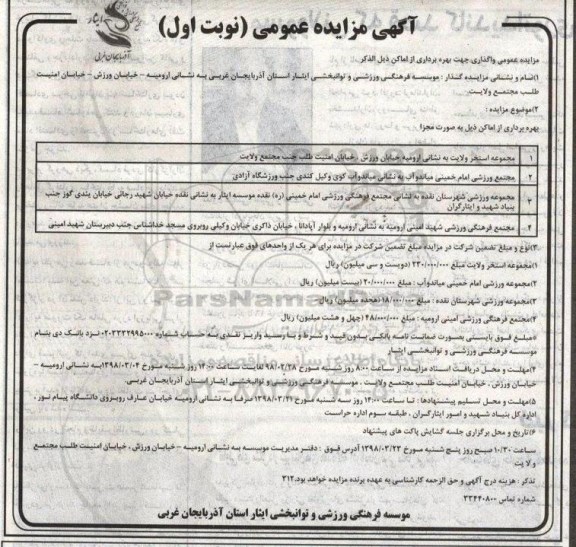 آگهی مزایده عمومی (نوبت اول)
ایثار
آذربایجان غربی
مزایده عمومی واگذاری جهت بهره برداری از اماکن ذیل الذکر.
۱)نام و نشانی مزایده گذار : موسسه فرهنگی ورزشی و توانبخشی ایثار استان آذربایجان غربی به نشانی ارومیه - خیابان ورزش - خیابان امنیت
طلب مجتمع ولایت.
۲)موضوع مزایده :
بهره برداری از اماکن ذیل به صورت مجزا
۱ مجموعه استخر ولایت به نشانی ارومیه خیابان ورزش - خیابان امنیت طلب جنب مجتمع ولایت
۲ مجتمع ورزشی امام خمینی میاندوآب به نشانی میاندوآب کوی وکیل کندی جنب ورزشگاه آزادی
۳ مجموعه ورزشی شهرستان نقده به نشانی مجتمع فرهنگی ورزشی امام خمینی (ره) نقده موسسه ایثار به نشانی نقده خیابان شهید رجائی خیابان یندی گوز جنب
بنیاد شهید و ایثارگران
۴ مجتمع فرهنگی ورزشی شهید امینی ارومیه به نشانی ارومیه و بلوار آپادانا ، خیابان ذاکری خیابان وکیلی روبروی مسجد خداشناس جنب دبیرستان شهید امینی
۳)نوع و مبلغ تضمین شرکت در مزایده مبلغ تضمین شرکت در مزایده برای هر یک از واحدهای فوق عبارتست از
۱)مجموعه استخر ولایت مبلغ ۲۳۰/۰۰۰/۰۰۰ (دویست و سی میلیون) ریال
۲)مجموعه ورزشی امام خمینی میاندوآب : مبلغ ۲۰/۰۰۰/۰۰۰ (بیست میلیون) ریال
۳)مجموعه ورزشی شهرستان نقده : مبلغ ۱۸/۰۰۰/۰۰۰ (هجده میلیون) ریال
۴)مجتمع فرهنگی ورزشی امینی ارومیه : مبلغ ۴۸/۰۰۰/۰۰۰ (چهل و هشت میلیون) ریال
*مبلغ فوق بایستی بصورت ضمانت نامه بانکی بدون قید و شرط و یا رسید واریز نقدی به حساب شماره ۰۲۰۳۳۳۲۹۹۵۰۰۰ نزد بانک دی بنام
موسسه فرهنگی ورزشی و توانبخشی ایثار
۴)مهلت و محل دریافت اسناد مزایده از ساعت ۸:۰۰ روز شنبه مورخ ۹۸/۰۲/۲۸ لغایت ساعت ۱۴:۰۰ روز شنبه مورخ ۱۳۹۸/۰۳/۰۴به نشانی ارومیه -
خیابان ورزش ، خیابان امنیت طلب مجتمع ولایت ، موسسه فرهنگی ورزشی و توانبخشی ایثار استان آذربایجان غربی.
۵)مهلت و محل تسلیم پیشنهادها: تا ساعت ۱۴:۰۰ روز سه شنبه مورخ ۱۳۹۸/۰۳/۲۱ صرفا به نشانی ارومیه خیابان عارف روبروی دانشگاه پیام نور ،
اداره کل بنیاد شهید و امور ایثارگران ، طبقه سوم اداره حراست
۶)تاریخ و محل برگزاری جلسه گشایش پاکت های پیشنهاد
ساعت ۱۰/۳۰ صبح روز پنج شنبه مورخ ۱۳۹۸/۰۳/۲۳ آدرس فوق : دفتر مدیریت موسسه به نشانی ارومیه - خیابان ورزش ، خیابان امنیت طلب مجتمع
ولایت
تذکر : هزینه درج آگهی و حق الزحمه کارشناسی به عهده برنده مزایده خواهد بود.۳۱۲
شماره تماس ۳۳۴۴۰۸۰۰
موسسه فرهنگی ورزشی و توانبخشی ایثار استان آذربایجان غربی